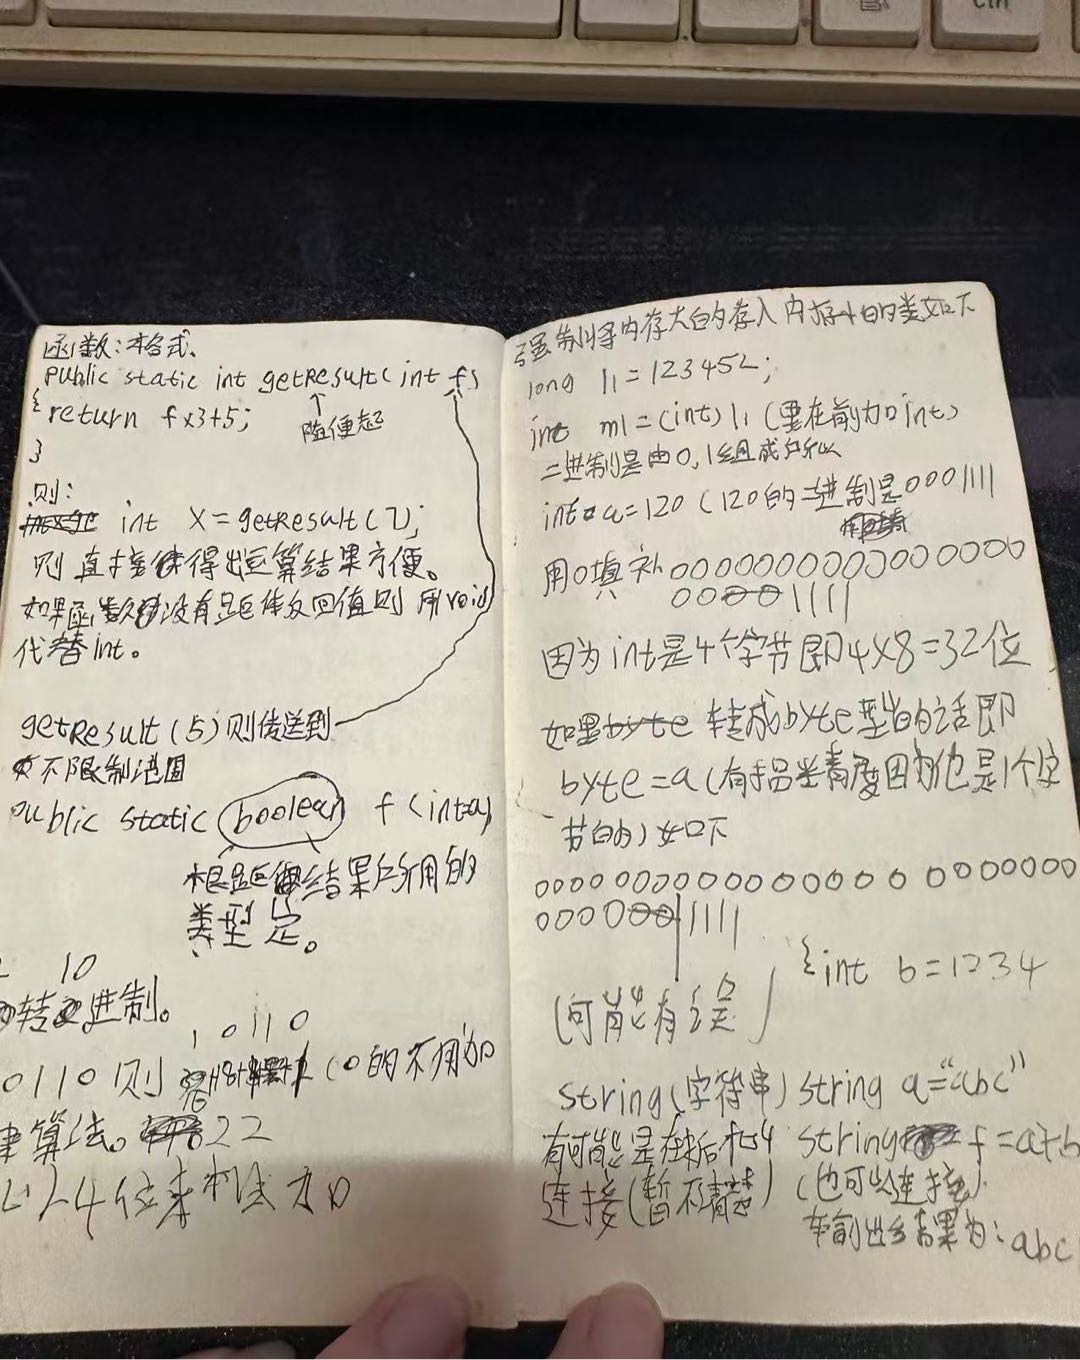 Ctrl
函数:本格式、
public static int getResult(int f)
{
return f×3+5;
随便起
}
则:
int x=getResult(7);
则直接得出运算结果方便。
如果函数没有具体反回值则用void
代替int。
getResult(5)则传送到
不限制范围
public static boolean f(int a)
根据结果所用的
类型定。
10
转进制。
1 0 1 1 0
0110则 (0的不用加
算算法。22
以24位来
强制将内存大的存入内存小的类如下
long l1=12345L;
int m1=(int)l1(要在前加int)
二进制是由0,1组成所以
int a=120(120的二进制是0001111
用0填补000000000000000
00001111
因为int是4个字节即4×8=32位
如果byte转成byte型的话即
byte=a(有损坐精度因为他是1个字
节的)如下
000000000000000000000
0000001111
{int b=1234
(可能有误)
string(字符串)string a="abc"
有可能是在末后加4 string f=a+b
连接(暂不清楚)(也可以连接)
车前出结果为:abc